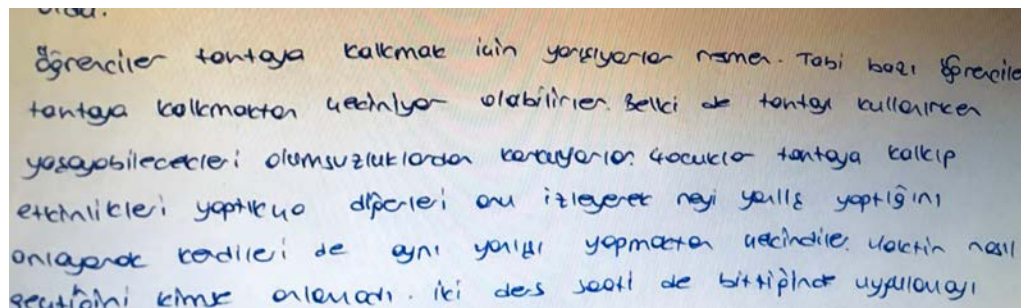 oldu.
Öğrenciler tahtaya kalkmak için yarışıyorlar resmen. Tabi bazı öğrencile
tahtaya kalkmaktan çekiniyor olabilirler. Belki de tahtayı kullanırken
yaşayabilecekleri olumsuzluklardan korkuyorlar. Çocuklar tahtaya kalkıp
etkinlikleri yaptıkça diğerleri onu izleyerek neyi yanlış yaptığını
anlayarak kendileri de aynı yanlışı yapmaktan çekindiler. Vaktin nasıl
geçtiğini kimse anlamadı. İki ders saati de bittiğinde uygulamayı